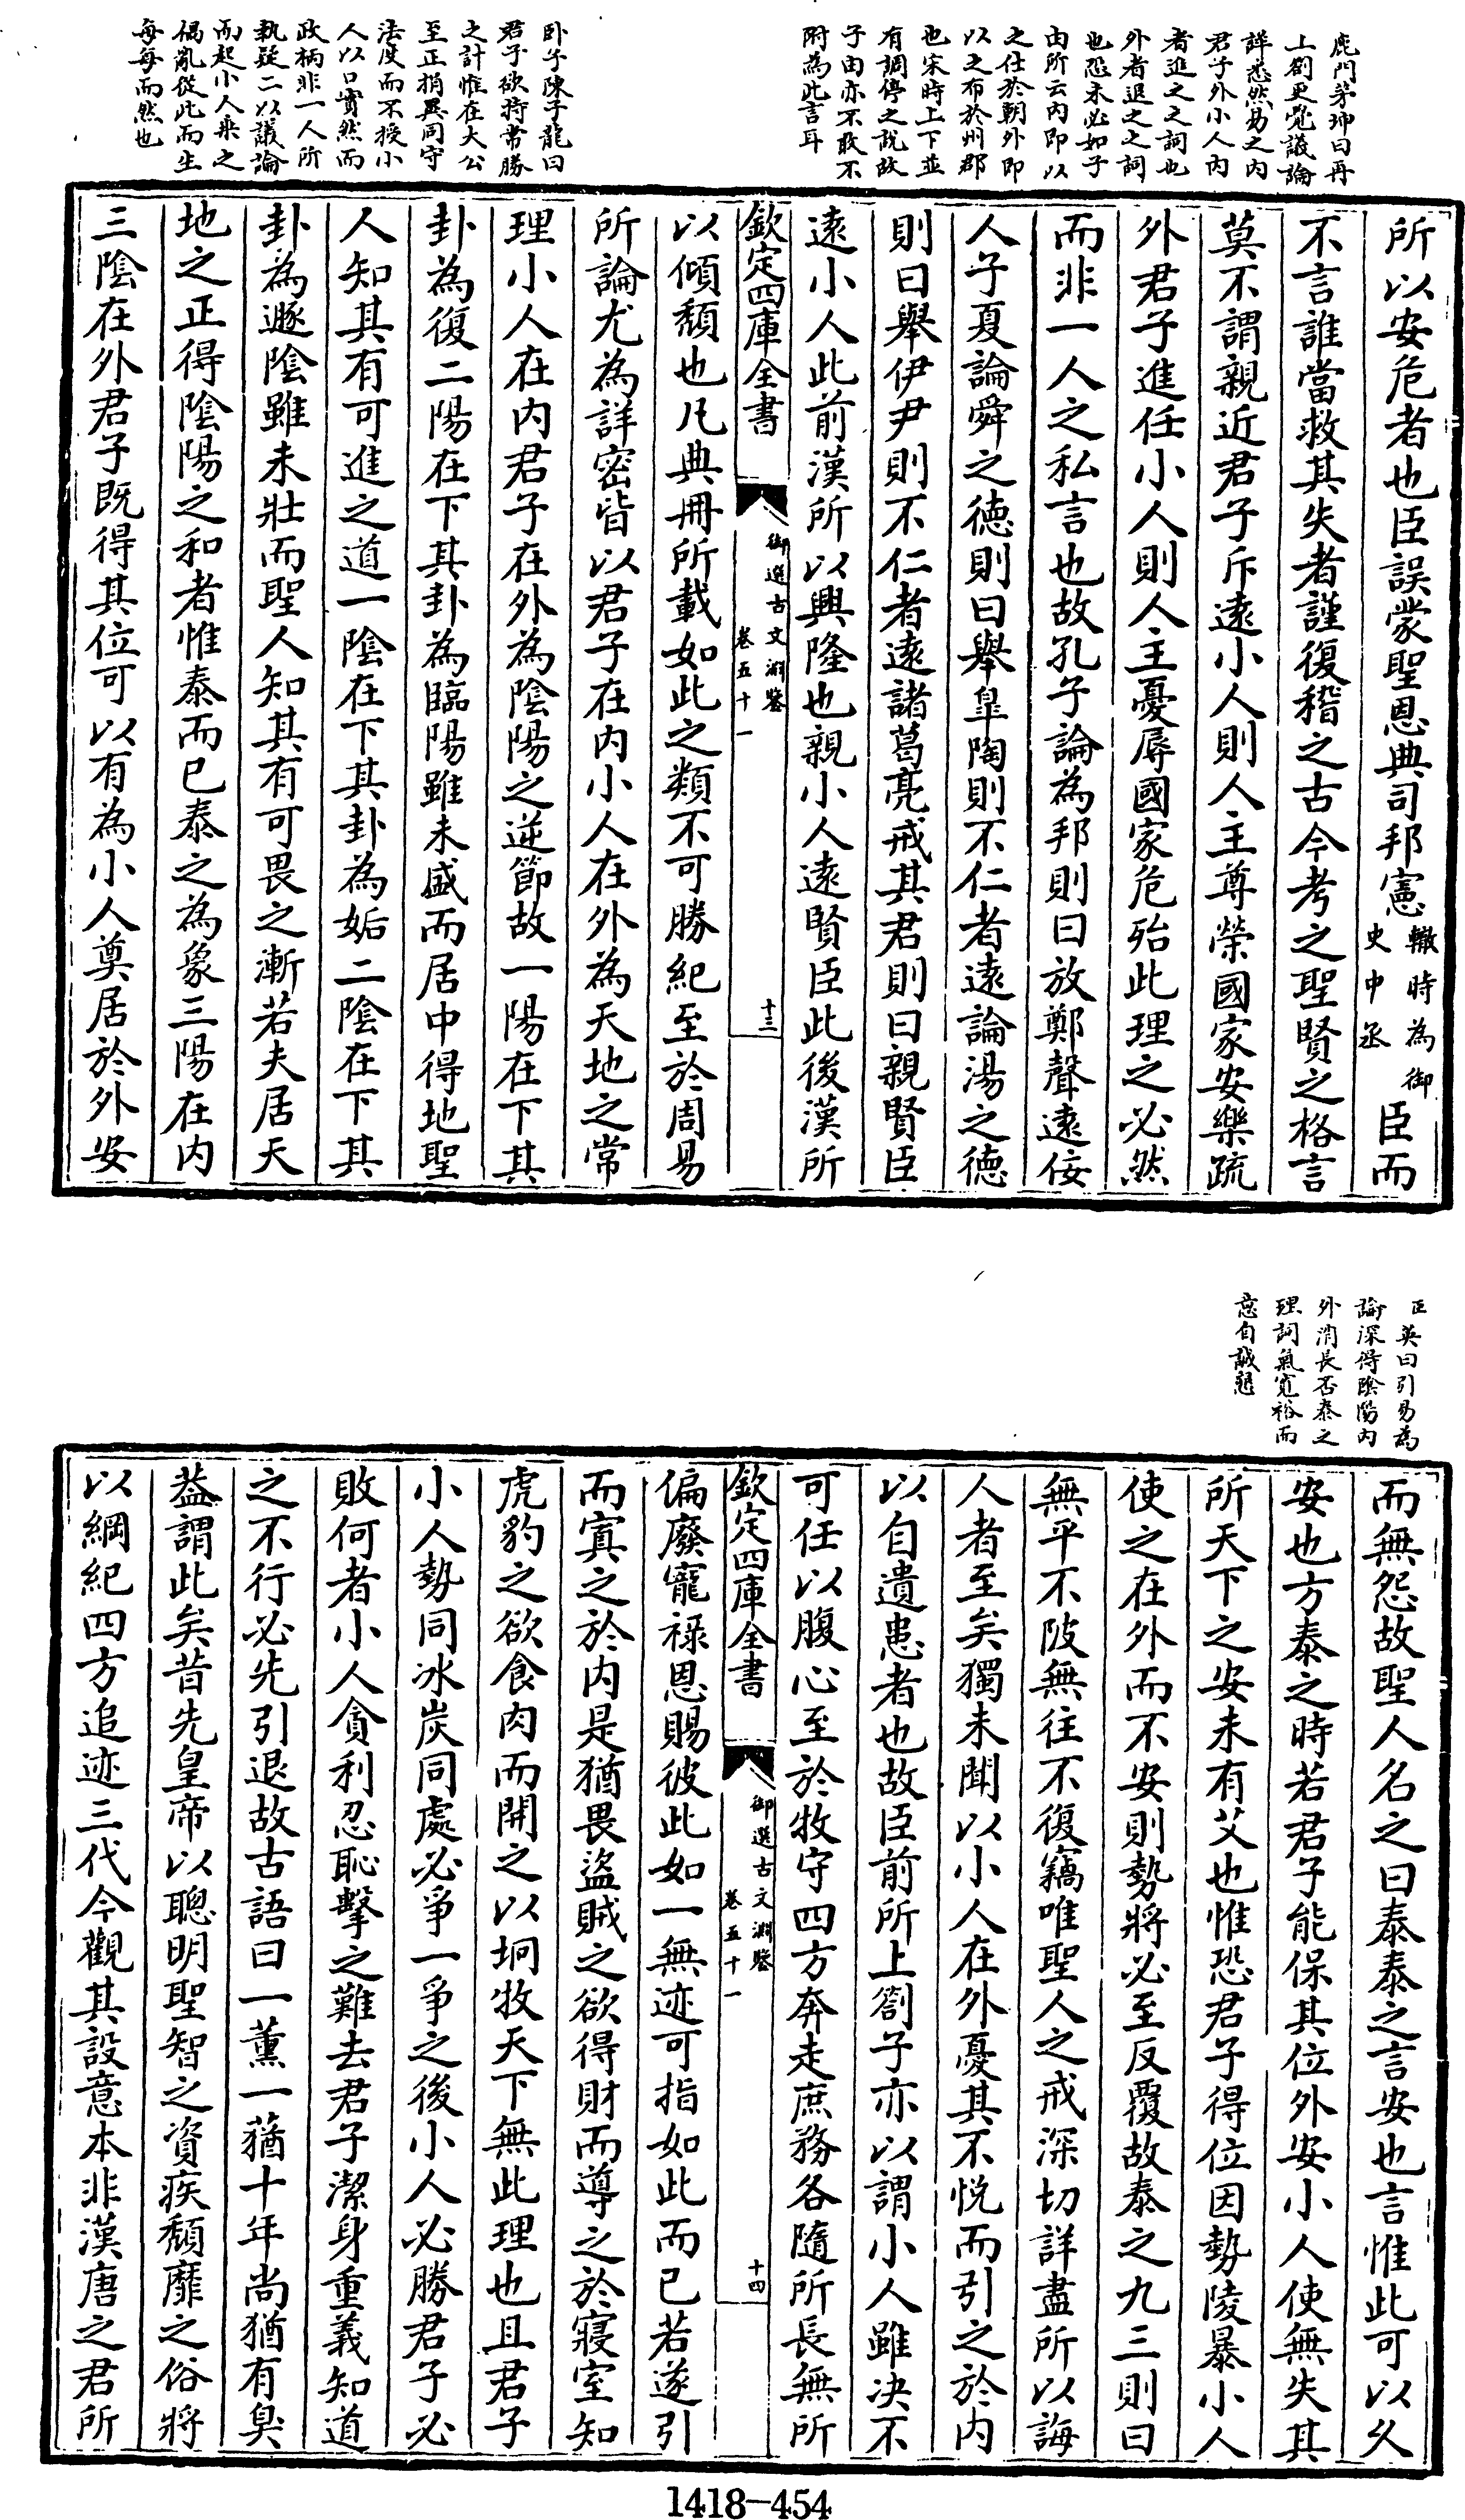 鹿門茅坤曰再
上劄更覺議論
詳悉然易之内
君子外小人内
者進之之詞也
外者退之之詞
也恐未必如子
由所云内即以
之仕於朝外即
以之布於州郡
也宋時上下並
有調停之說故
子由亦不敢不
附為此言耳
卧子陳子龍曰
君子欲持常勝
之計惟在大公
至正捐異同守
法度而不授小
人以口實然而
政柄非一人所
執疑二以議論
而起小人乘之
禍亂從此而生
每每而然也
所以安危者也臣誤蒙聖恩典司邦憲轍時為御史中丞臣而
不言誰當救其失者謹復稽之古今考之聖賢之格言
莫不謂親近君子斥遠小人則人主尊榮國家安樂疏
外君子進任小人則人主憂辱國家危殆此理之必然
而非一人之私言也故孔子論為邦則曰放鄭聲遠佞
人子夏論舜之德則曰舉臯陶則不仁者遠論湯之德
則曰舉伊尹則不仁者遠諸葛亮戒其君則曰親賢臣
遠小人此前漢所以興隆也親小人遠賢臣此後漢所
欽定四庫全書
御選古文淵鑒
卷五十一
十三
以傾頽也凡典冊所載如此之類不可勝紀至於周易
所論尤為詳密皆以君子在内小人在外為天地之常
理小人在内君子在外為陰陽之逆節故一陽在下其
卦為復二陽在下其卦為臨陽雖未盛而居中得地聖
人知其有可進之道一陰在下其卦為姤二陰在下其
卦為遯陰雖未壯而聖人知其有可畏之漸若夫居天
地之正得陰陽之和者惟泰而已泰之為象三陽在内
三陰在外君子既得其位可以有為小人奠居於外安
臣英曰引易為
論深得陰陽内
外消長否泰之
理詞氣寛裕而
意自誠懇
而無怨故聖人名之曰泰泰之言安也言惟此可以久
安也方泰之時若君子能保其位外安小人使無失其
所天下之安未有艾也惟恐君子得位因勢陵暴小人
使之在外而不安則勢將必至反覆故泰之九三則曰
無平不陂無往不復竊唯聖人之戒深切詳盡所以誨
人者至矣獨未聞以小人在外憂其不悦而引之於内
以自遺患者也故臣前所上劄子亦以謂小人雖決不
可任以腹心至於牧守四方奔走庶務各隨所長無所
欽定四庫全書
御選古文淵鑒
卷五十一
十四
偏廢寵祿恩賜彼此如一無迹可指如此而已若遂引
而寘之於内是猶畏盜賊之欲得財而導之於寢室知
虎豹之欲食肉而開之以坰牧天下無此理也且君子
小人勢同冰炭同處必爭一爭之後小人必勝君子必
敗何者小人貪利忍恥擊之難去君子潔身重義知道
之不行必先引退故古語曰一薰一蕕十年尚猶有臭
蓋謂此矣昔先皇帝以聰明聖智之資疾頽靡之俗將
以綱紀四方追迹三代今觀其設意本非漢唐之君所
1418-454